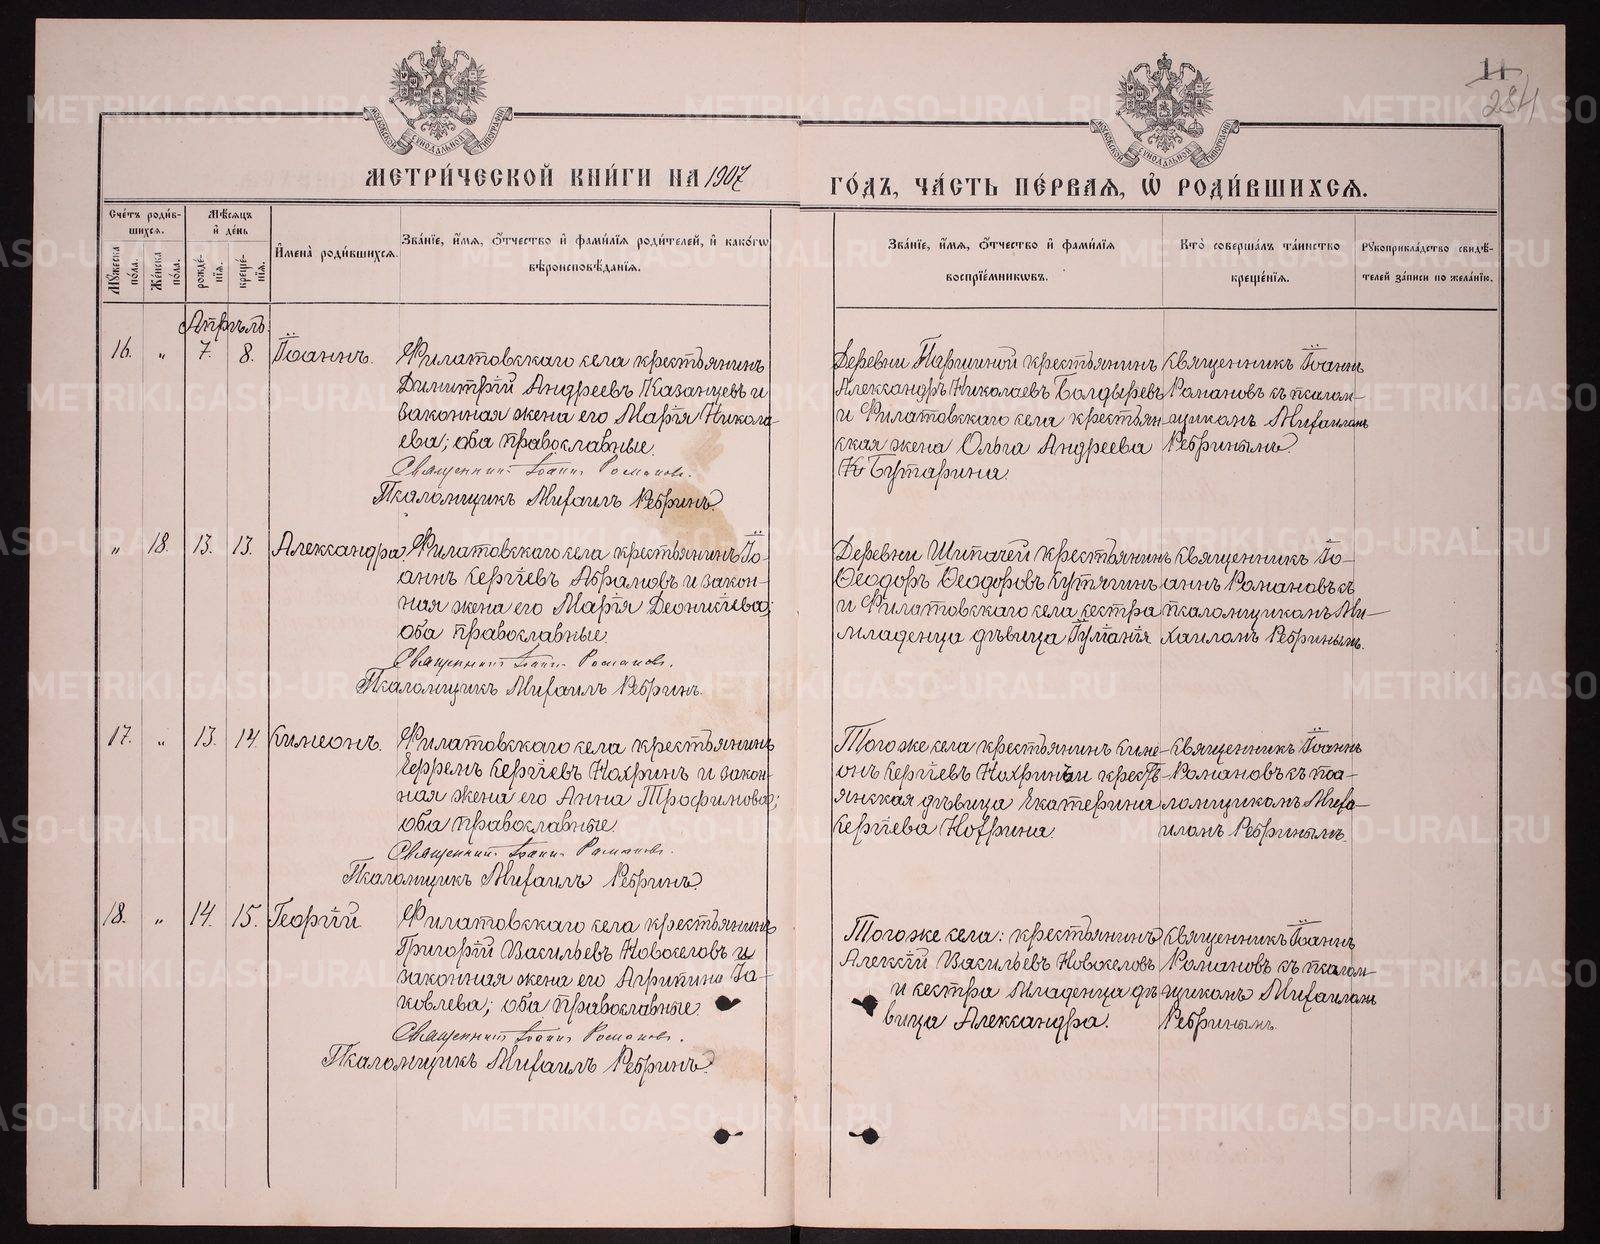 11
284
МОСКОВСКОЙ СУНОДАЛЬНОЙ ТИПОГРАФІИ
МОСКОВСКОЙ СУНОДАЛЬНОЙ ТИПОГРАФІИ
МЕТРИ́ЧЕСКОЙ КНИ́ГИ НА 1907
ГО́ДЪ, ЧА́СТЬ ПЕ́РВАѦ, Ѽ РОДИ́ВШИХСѦ.
Сче́тъ роди́в-
шихсѧ.
Мꙋжеска по́ла.
Же́нска по́ла.
Мѣ́сѧцъ
и҆ де́нь
рожде́-
нїѧ.
креще́-
нїѧ.
И҆мена̀ роди́вшихсѧ.
Зва́нїе, и҆́мѧ, ѻ҆́тчество и҆ фами́лїѧ роди́телей, и҆ како́гѡ
вѣроисповѣ́данїѧ.
Зва́нїе, и҆́мѧ, ѻ҆́тчество и҆ фами́лїѧ
воспрїе́мникѡвъ.
Кто̀ соверша́лъ та́инство
креще́нїѧ.
Рꙋкоприкла́дство свидѣ́-
телей за́писи по жела́нїю.
Апрѣль.
16. „ 7. 8. Іоаннъ.
Филатовскаго села крестьянинъ
Димитрій Андреевъ Казанцевъ и
законная жена его Марія Никола-
ева; оба православные.
Священникъ Іоаннъ Романовъ.
Псаломщикъ Михаилъ Ребринъ.
Деревни Паршиной крестьянинъ
Александръ Николаевъ Болдыревъ
и Филатовскаго села крестьян-
ская жена Ольга Андреева
Бутарина.
Священникъ Іоаннъ
Романовъ съ псалом-
щикомъ Михаиломъ
Ребринымъ.
„ 18. 13. 13. Александра.
Филатовскаго села крестьянинъ Іо-
аннъ Сергіевъ Абрамовъ и закон-
ная жена его Марія Деонисіева;
оба православные.
Священникъ Іоаннъ Романовъ.
Псаломщикъ Михаилъ Ребринъ.
Деревни Шипачей крестьянинъ
Ѳеодоръ Ѳеодоровъ Кутягинъ
и Филатовскаго села сестра
младенца дѣвица Іуліанія
Священникъ Іо-
аннъ Романовъ съ
псаломщикомъ Ми-
хаиломъ Ребринымъ.
17. „ 13. 14. Симеонъ.
Филатовскаго села крестьянинъ
Ефремъ Сергіевъ Нохринъ и закон-
ная жена его Анна Трофимова;
оба православные.
Священникъ Іоаннъ Романовъ.
Псаломщикъ Михаилъ Ребринъ.
Того же села крестьянинъ Симе-
онъ Сергіевъ Нохринъ и кресть-
янская дѣвица Екатерина
Сергіева Нохрина.
Священникъ Іоаннъ
Романовъ съ пса-
ломщикомъ Миха-
иломъ Ребринымъ.
18. „ 14. 15. Георгій
Филатовскаго села крестьянинъ
Григорій Васильевъ Новоселовъ и
законная жена его Агрипина Іа-
ковлева; оба православные.
Священникъ Іоаннъ Романовъ.
Псаломщикъ Михаилъ Ребринъ.
Того же села: крестьянинъ
Алексій Васильевъ Новоселовъ
и сестра младенца дѣ-
вица Александра.
Священникъ Іоаннъ
Романовъ съ псалом-
щикомъ Михаиломъ
Ребринымъ.
METRIKI.GASO-URAL.RU